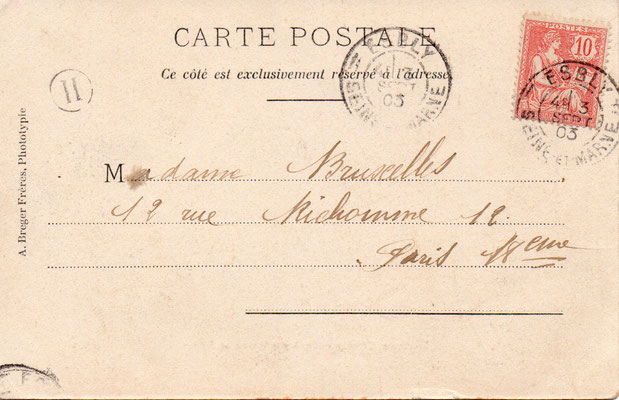 CARTE POSTALE
Ce côté est exclusivement réservé à l'adresse
POSTES
10
ESBLY
4E 3
SEPT
03
SEINE-ET-MARNE
ESBLY
4E 3
SEPT
03
SEINE-ET-MARNE
H
Madame Bruxelles
12 rue 12.
Paris
A. Breger Frères, Phototypie